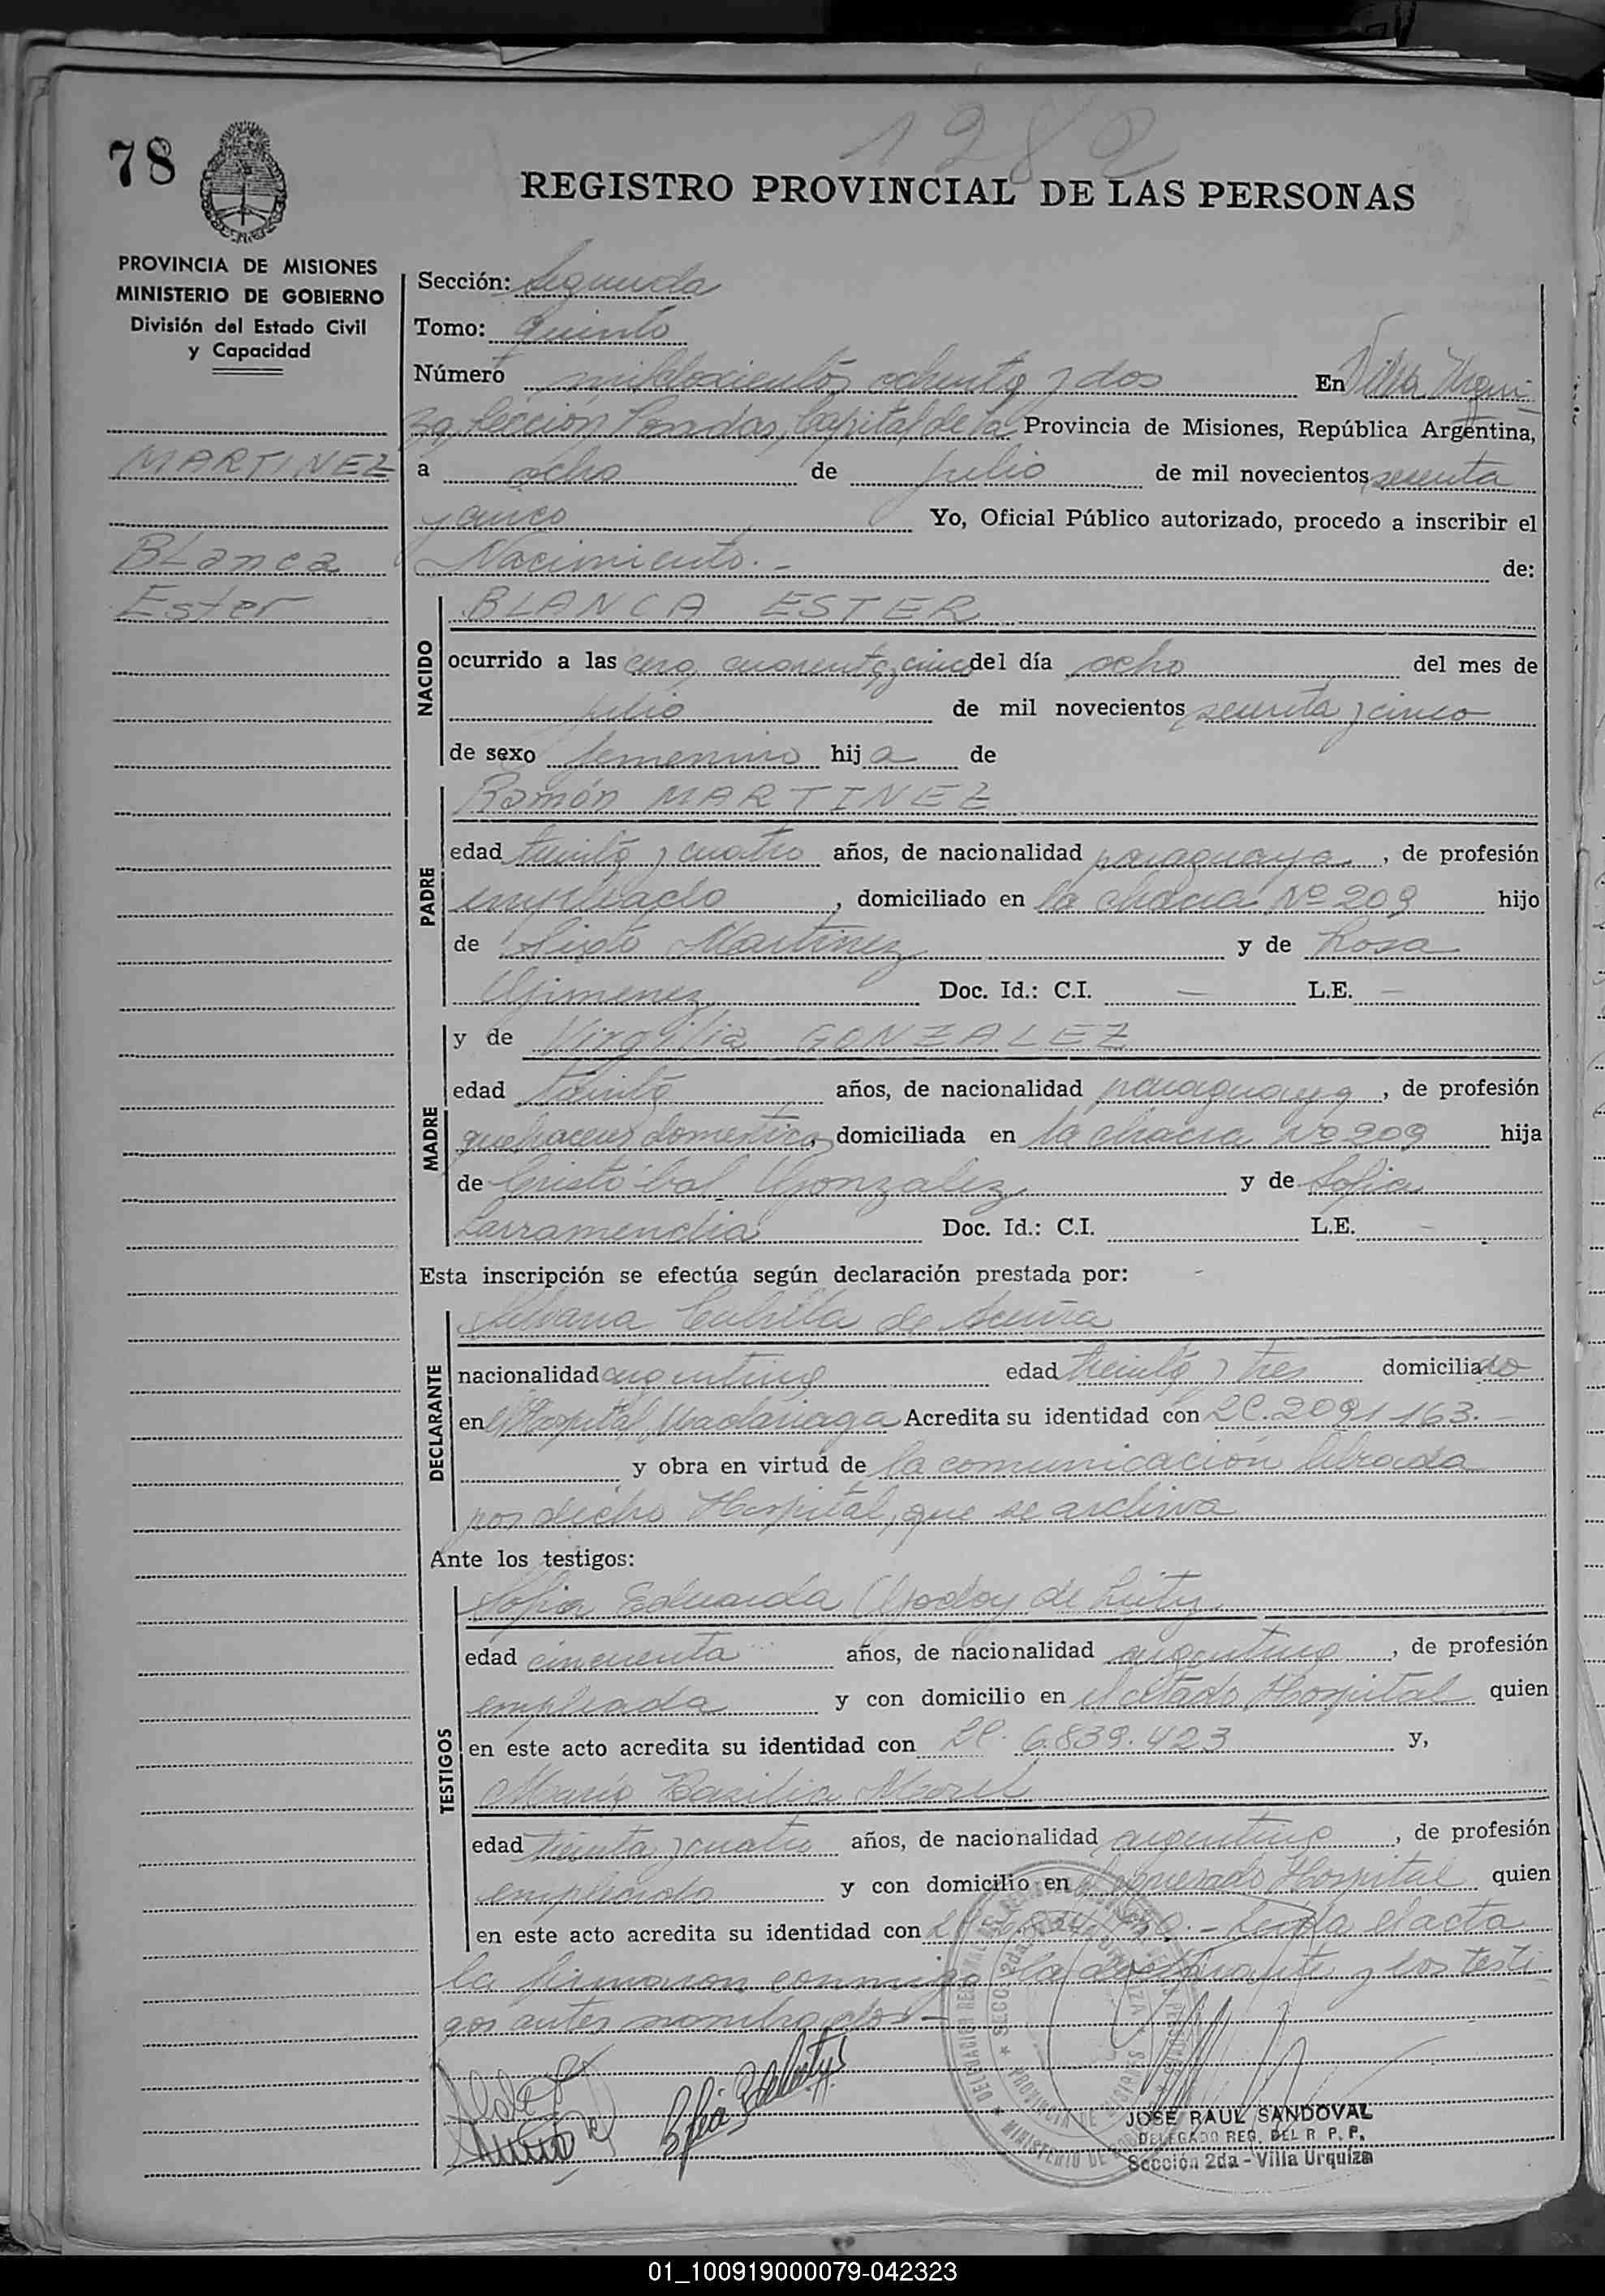 1282
78
REGISTRO PROVINCIAL DE LAS PERSONAS
PROVINCIA DE MISIONES
MINISTERIO DE GOBIERNO
División del Estado Civil
y Capacidad
MARTINEZ
Blanca
Ester
Sección: Segunda
Tomo: quinto
Número mildoscientos ochenta y dos En Villa Urqui-
za, Sección Posadas, Capital de la Provincia de Misiones, República Argentina,
a ocho de julio de mil novecientos sesenta
y cinco Yo, Oficial Público autorizado, procedo a inscribir el
Nacimiento.- de:
NACIDO
BLANCA ESTER
ocurrido a las cero, cuarenta y cinco del día ocho del mes de
julio de mil novecientos sesenta y cinco
de sexo femenino hija de
PADRE
Ramón MARTINEZ
edad treinta y cuatro años, de nacionalidad paraguaya, de profesión
empleado, domiciliado en la chacra Nº 209 hijo
de Sixto Martinez y de Rosa
Gimenez Doc. Id.: C.I. — L.E. —
MADRE
y de Virgilia GONZALEZ
edad treinta años, de nacionalidad paraguaya, de profesión
quehaceres domesticos, domiciliada en la chacra Nº 209 hija
de Cristóbal Gonzalez y de Sofia
Larramendia Doc. Id.: C.I. L.E. —
Esta inscripción se efectúa según declaración prestada por:
DECLARANTE
de Acuña
nacionalidad argentina edad treinta y tres domiciliado
en el Hospital Madariaga Acredita su identidad con LC. 2091163.-
y obra en virtud de la comunicación librada
por dicho Hospital, que se archiva
Ante los testigos:
TESTIGOS
Sofia Eduarda Godoy de
edad cincuenta años, de nacionalidad argentina, de profesión
empleada y con domicilio en el citado Hospital quien
en este acto acredita su identidad con LC. 6.839.423 y,
Basilia Morel
edad treinta y cuatro años, de nacionalidad argentina, de profesión
empleada y con domicilio en el Hospital quien
en este acto acredita su identidad con Leida el acta
la firmaron conmigo la declarante y los testi-
gos antes nombrados-
JOSE RAUL SANDOVAL
DELEGADO REG. DEL R. P. P.
Sección 2da - Villa Urquiza
01_100919000079-042323